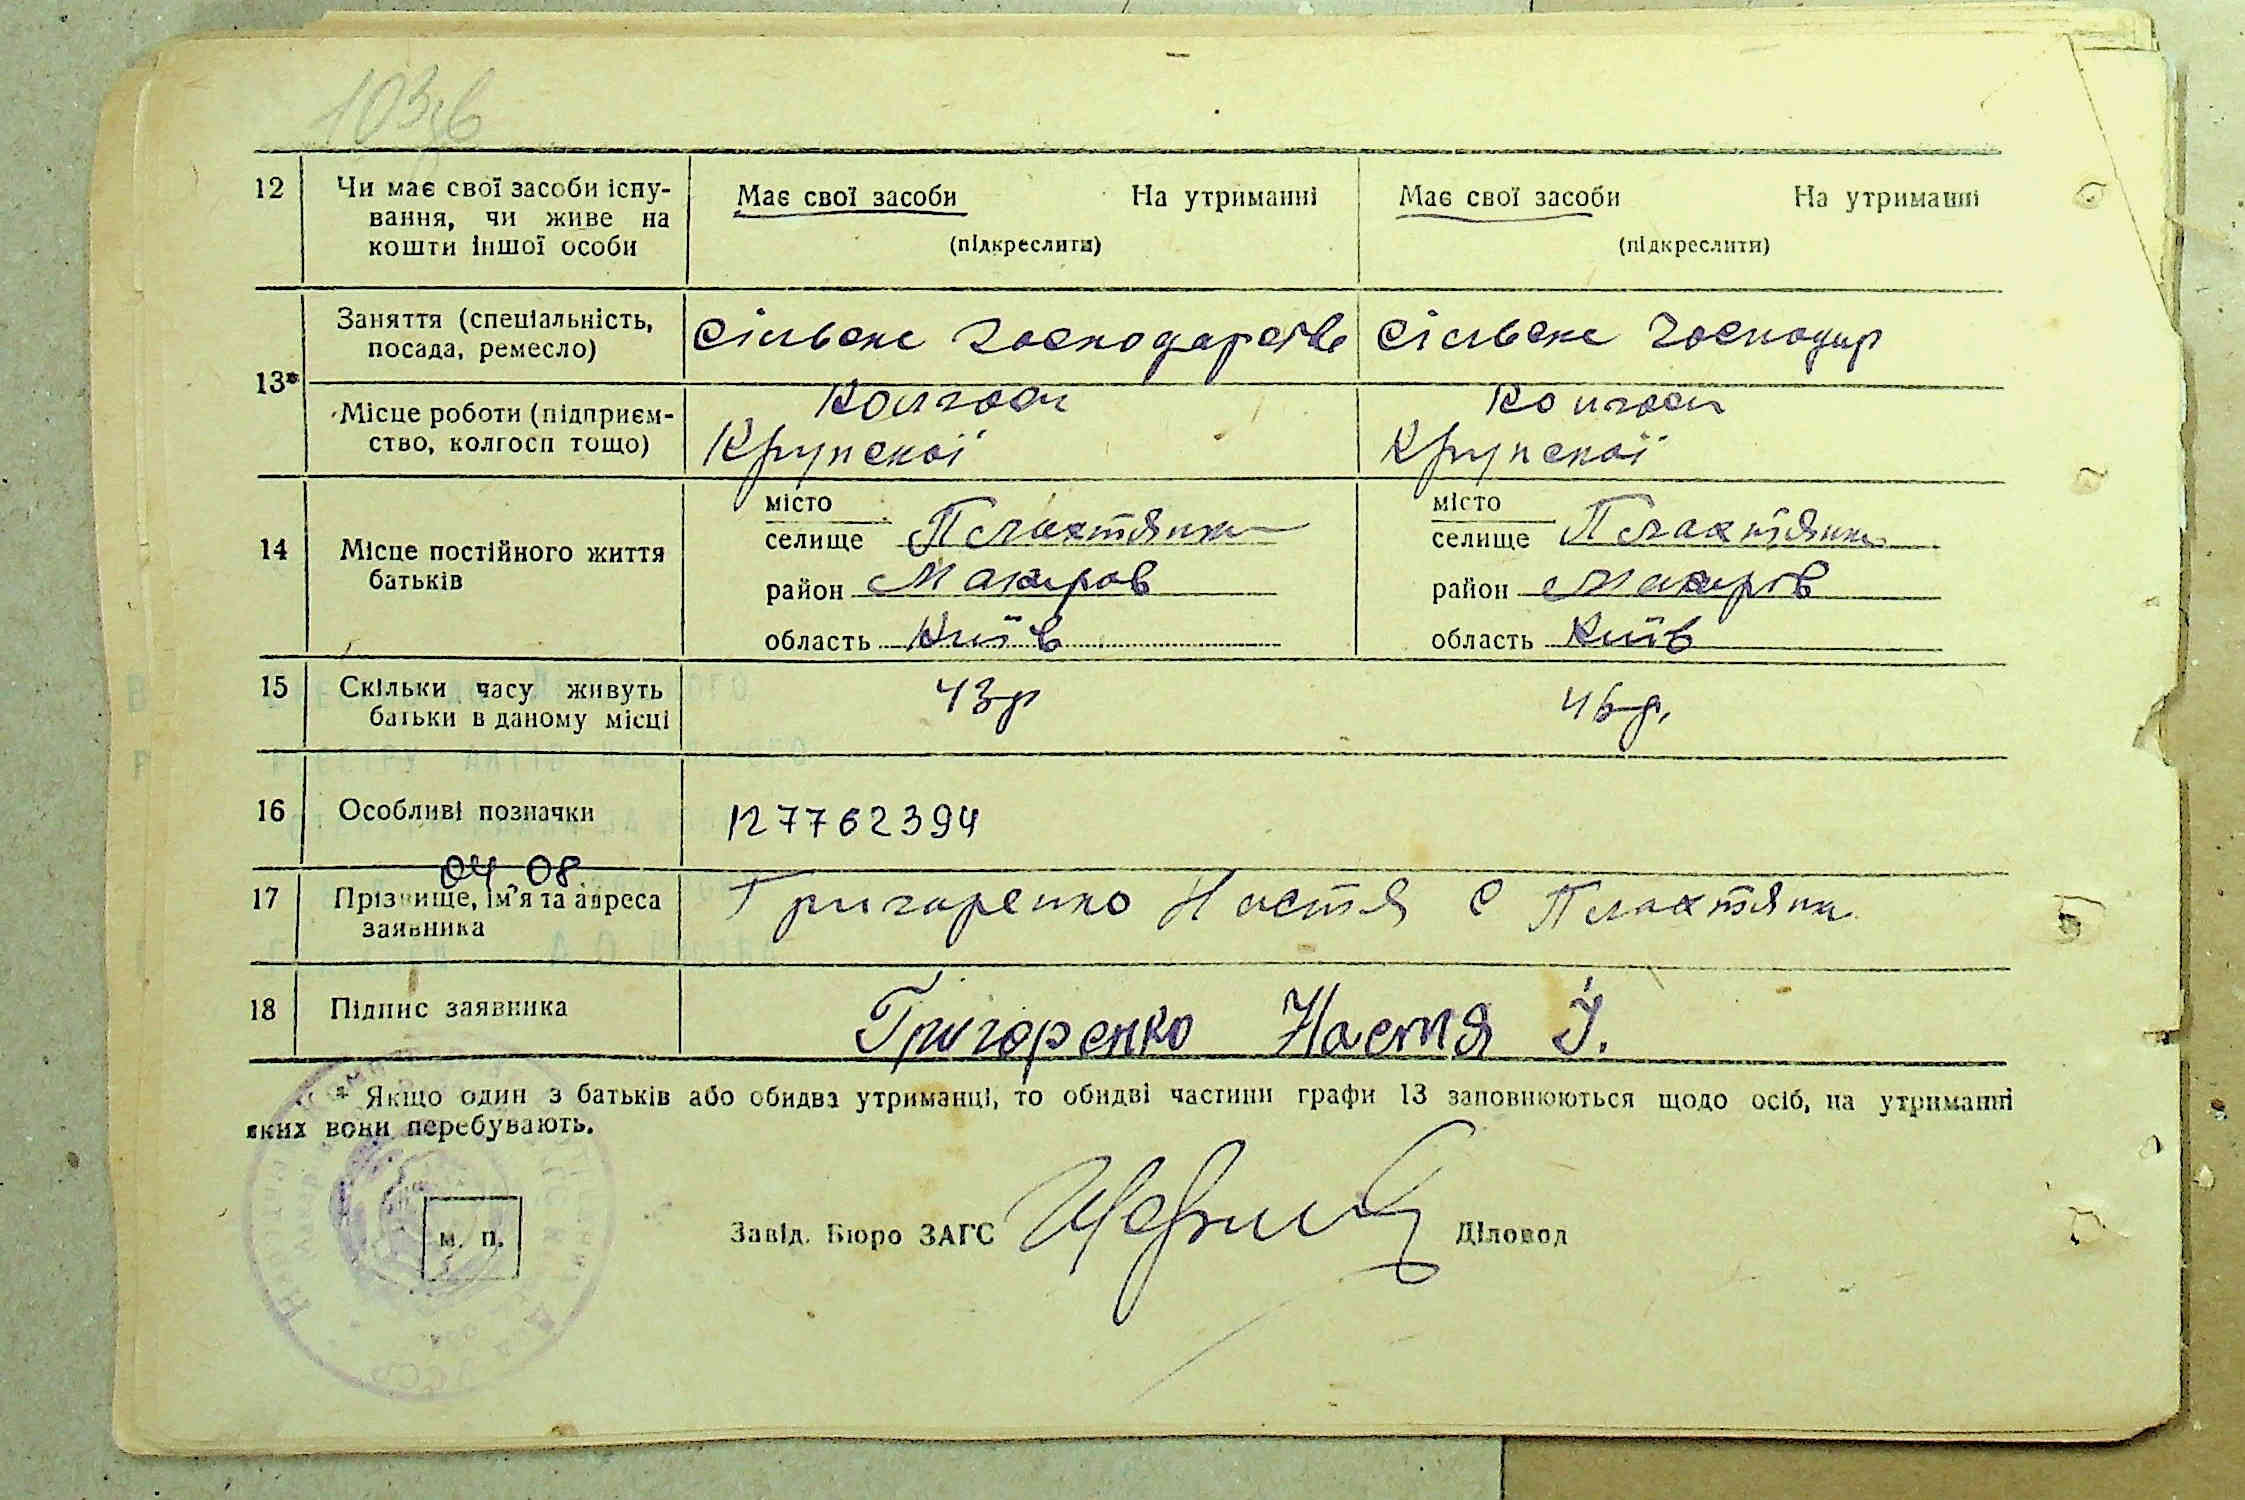 103зв
12 Чи має свої засоби існу- Має свої засоби На утриманні Має свої засоби На утриманні
вання, чи живе на
кошти іншої особи (підкреслити) (підкреслити)
13* Заняття (спеціальність, Сільське господарство Сільське господар
посада, ремесло)
Місце роботи (підприєм- Колгосп Колгосп
ство, колгосп тощо) Крупскої Крупскої
14 Місце постійного життя батьків
місто місто
селище Плахтянка селище Плахтянка
район Макаров район Макарів
область Київ область Київ
15 Скільки часу живуть 43р 46р.
батьки в даному місці
16 Особливі позначки 127762394
04 08
17 Прізвище, ім'я та адреса Григоренко Настя с Плахтянка
заявника
18 Підпис заявника Григоренко Настя Й.
* Якщо один з батьків або обидва утриманці, то обидві частини графи 13 заповнюються щодо осіб, на утриманні
яких вони перебувають.
м. п.
Завід. Бюро ЗАГС Діловод